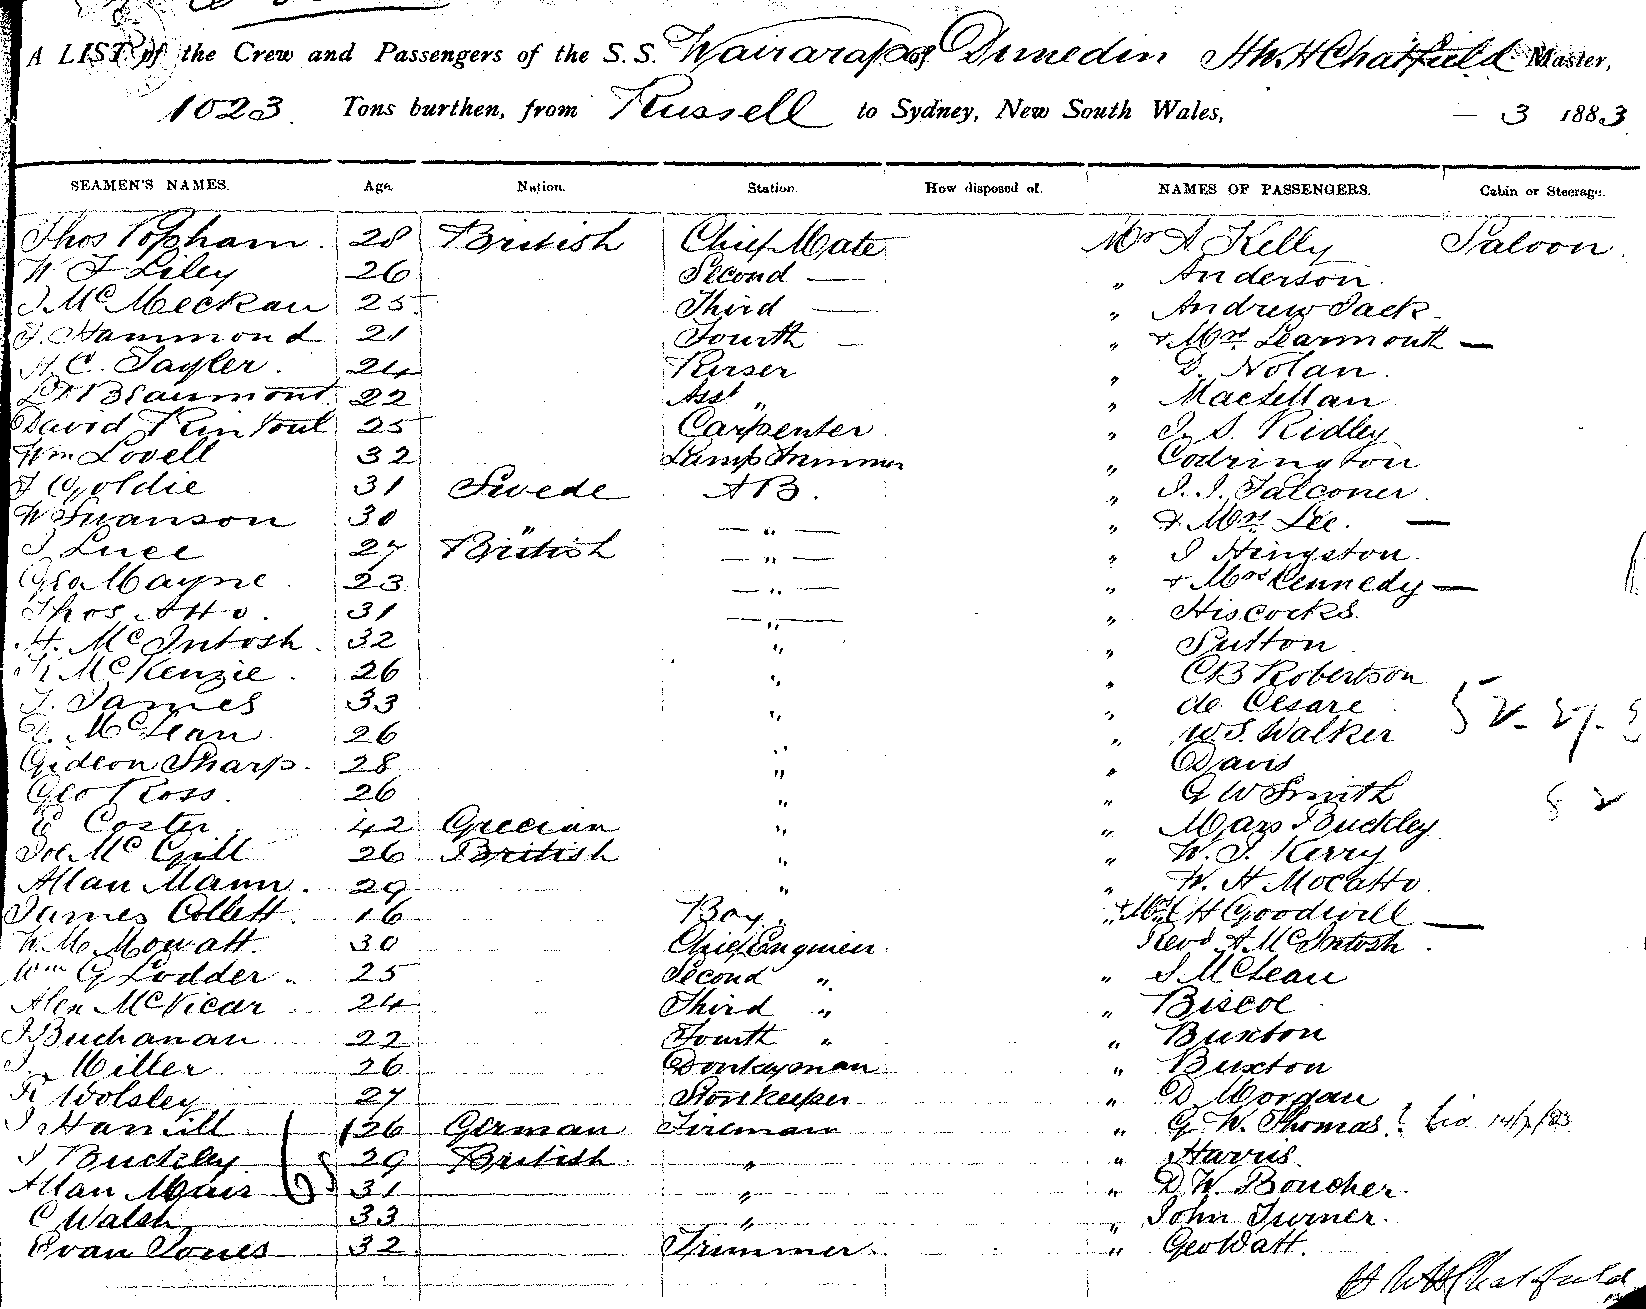 A LIST of the Crew and Passengers of the S.S. Wairarapa of Dunedin H.W.H Chatfield Master,
1023 Tons burthen, from Russell to Sydney, New South Wales, — 3 1883
SEAMEN'S NAMES. Age. Nation. Station. How disposed of. NAMES OF PASSENGERS. Cabin or Steerage.
Thos Popham. 28 British Chief Mate Mr A Kelly Saloon.
W F Liley 26 Second — " Anderson.
J McMeckan 25 Third — " Andrew Jack
J. Hammond 21 Fourth — " & Mrs Learmonth —
H C. Tayler. 24 Purser " D. Nolan.
Beaumont 22 Asst " " Maclellan
David Rintoul 25 Carpenter " J. S. Ridley
Wm Lovell 32 Lamp Trimmer " Codrington
J Goldie 31 Swede AB. " J. J. Falconer.
W Swanson 30 " — " — " & Mrs Lee. —
J Luce 27 British — " — " J Hingston.
Geo Mayne. 23 — " — " & Mrs Kennedy —
Thos Atto. 31 — " — " Hiscocks.
H. McIntosh. 32 " " Sutton
K McKenzie. 26 " " CB Robertson
J. James 33 " " de Cesare
D. McLean 26 " " W.S. Walker
Gideon Sharp. 28 " " Davis
Geo Ross. 26 " " G W Smith
Coster. 42 Grecian " " Mars Buckley
Joe McGill 26 British " " W. J. Kerry
Allan Mann. 29 " " W. H Mocatto.
James Collett. 16 Boy. " & Mrs C H Goodwill —
W. M. Mowatt. 30 Chief Engineer. Revd A McIntosh.
Wm G Lodder. 25 Second " " J McLean
Alex McVicar 24 Third " " Biscoe
J Buchanan 22 Fourth " " Buxton
J. Miller. 26 Donkeyman " Buxton
R Wolsley 27 Storekeeper " D Morgan
J Hamill 26 German Fireman " G. W. Thomas.
J Buckley. 29 British " " Harris.
Allan Muir 31 " " D. W. Boucher.
C Walsh 33 " " John Turner.
Evan Jones 32 Trimmer. " Geo Watt.
H W H Chatfield